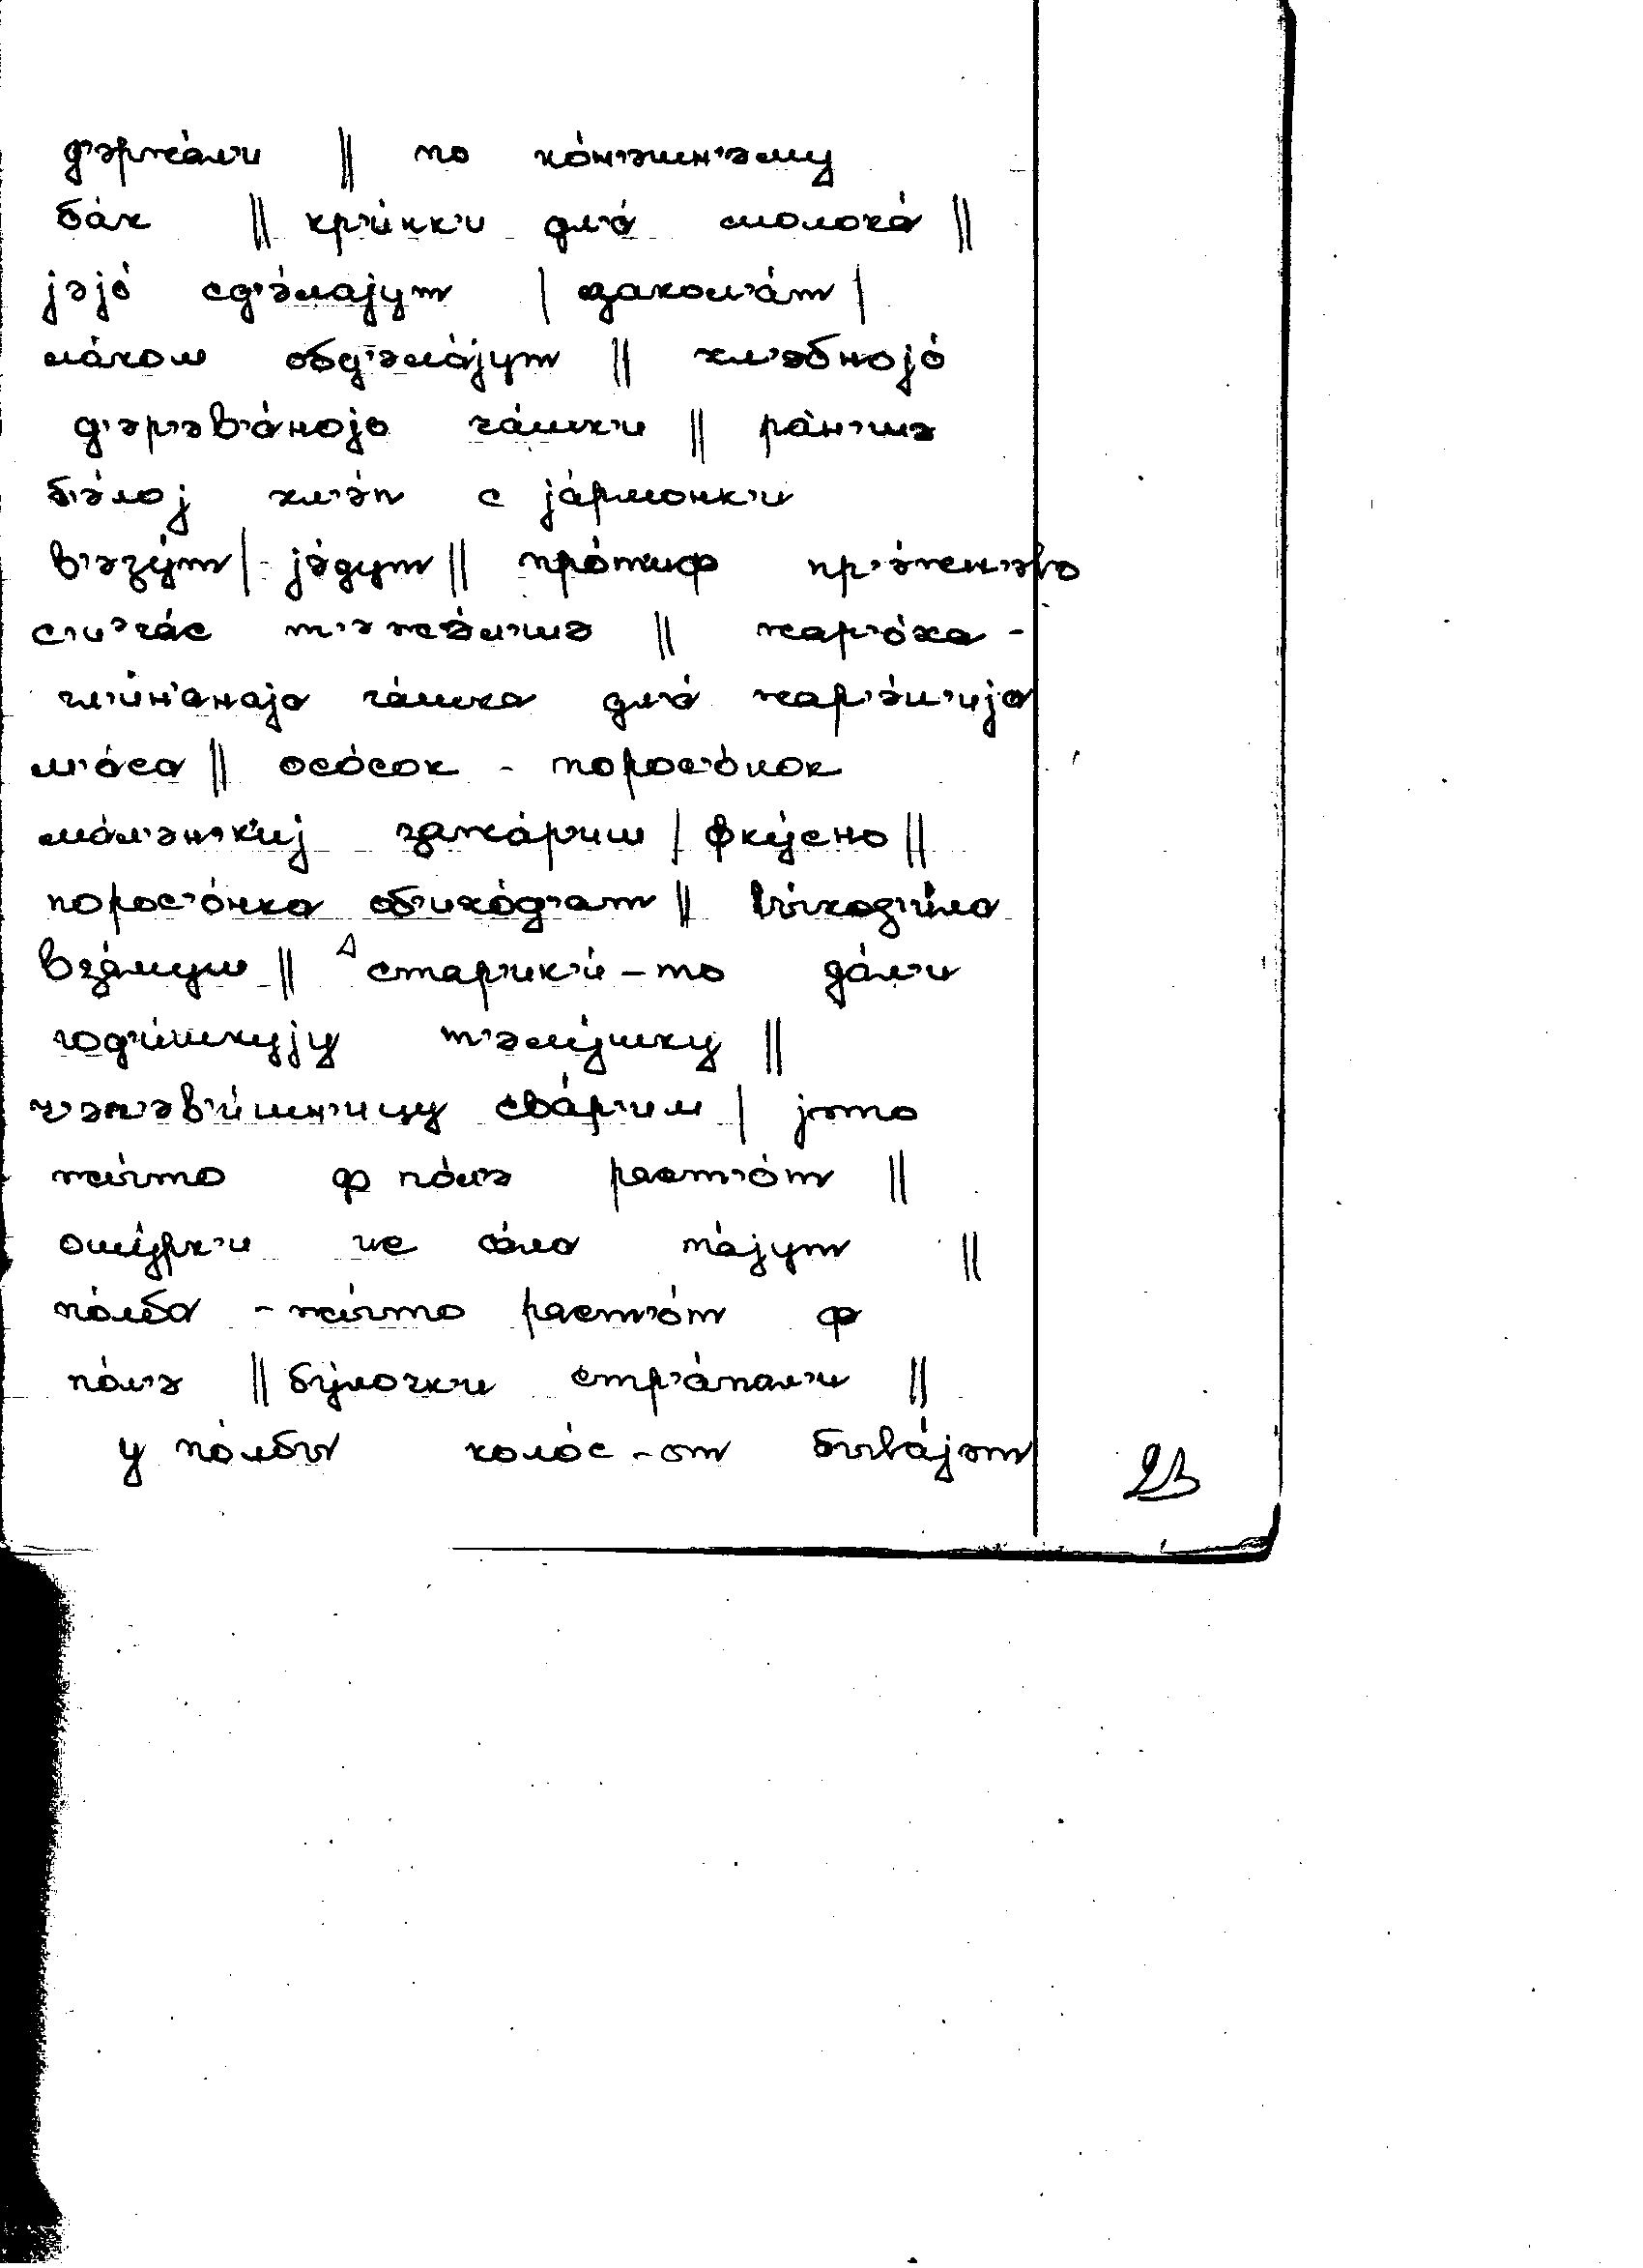 д'эржа́л'и || по ко́н'шн'эму
ба́к || кр'и́нк'и дл'а́ молока́ ||
јэјо́ сд'э́лајут | закол'а́т |
ма́ком обд'эла́јут || хл'эбнојо́
д'эр'эв'а́нојо ча́шк'и || ра́н'шэ
б'э́лој хл'э́п с ја́рмонк'и
в'эзу́т | ја́дут || про́тиф пр'э́жн'эво
с'иэча́с т'ажэ́л'шэ || жар'о́ха -
гл'и́н'анаја ча́шка дл'а́ жар'э́н'ија
м'а́са || осо́сок - порос'о́нок
ма́л'эн'к'иј зажа́р'иш | фку́сно ||
порос'о́нка об'ихо́д'ат || вы́ход'ила
вза́муш || старик'и́-то да́л'и
год'и́шкују т'элу́шку ||
ч'эч'эв'и́шн'ицу сва́р'им | јэто
жы́то ф по́л'э раст'о́т ||
ошу́рк'и ис са́ла та́јут ||
по́лба - жы́то раст'о́т ф
по́л'э || бу́лочк'и стр'а́пал'и ||
у по́лбы коло́с-от быва́јэт
23